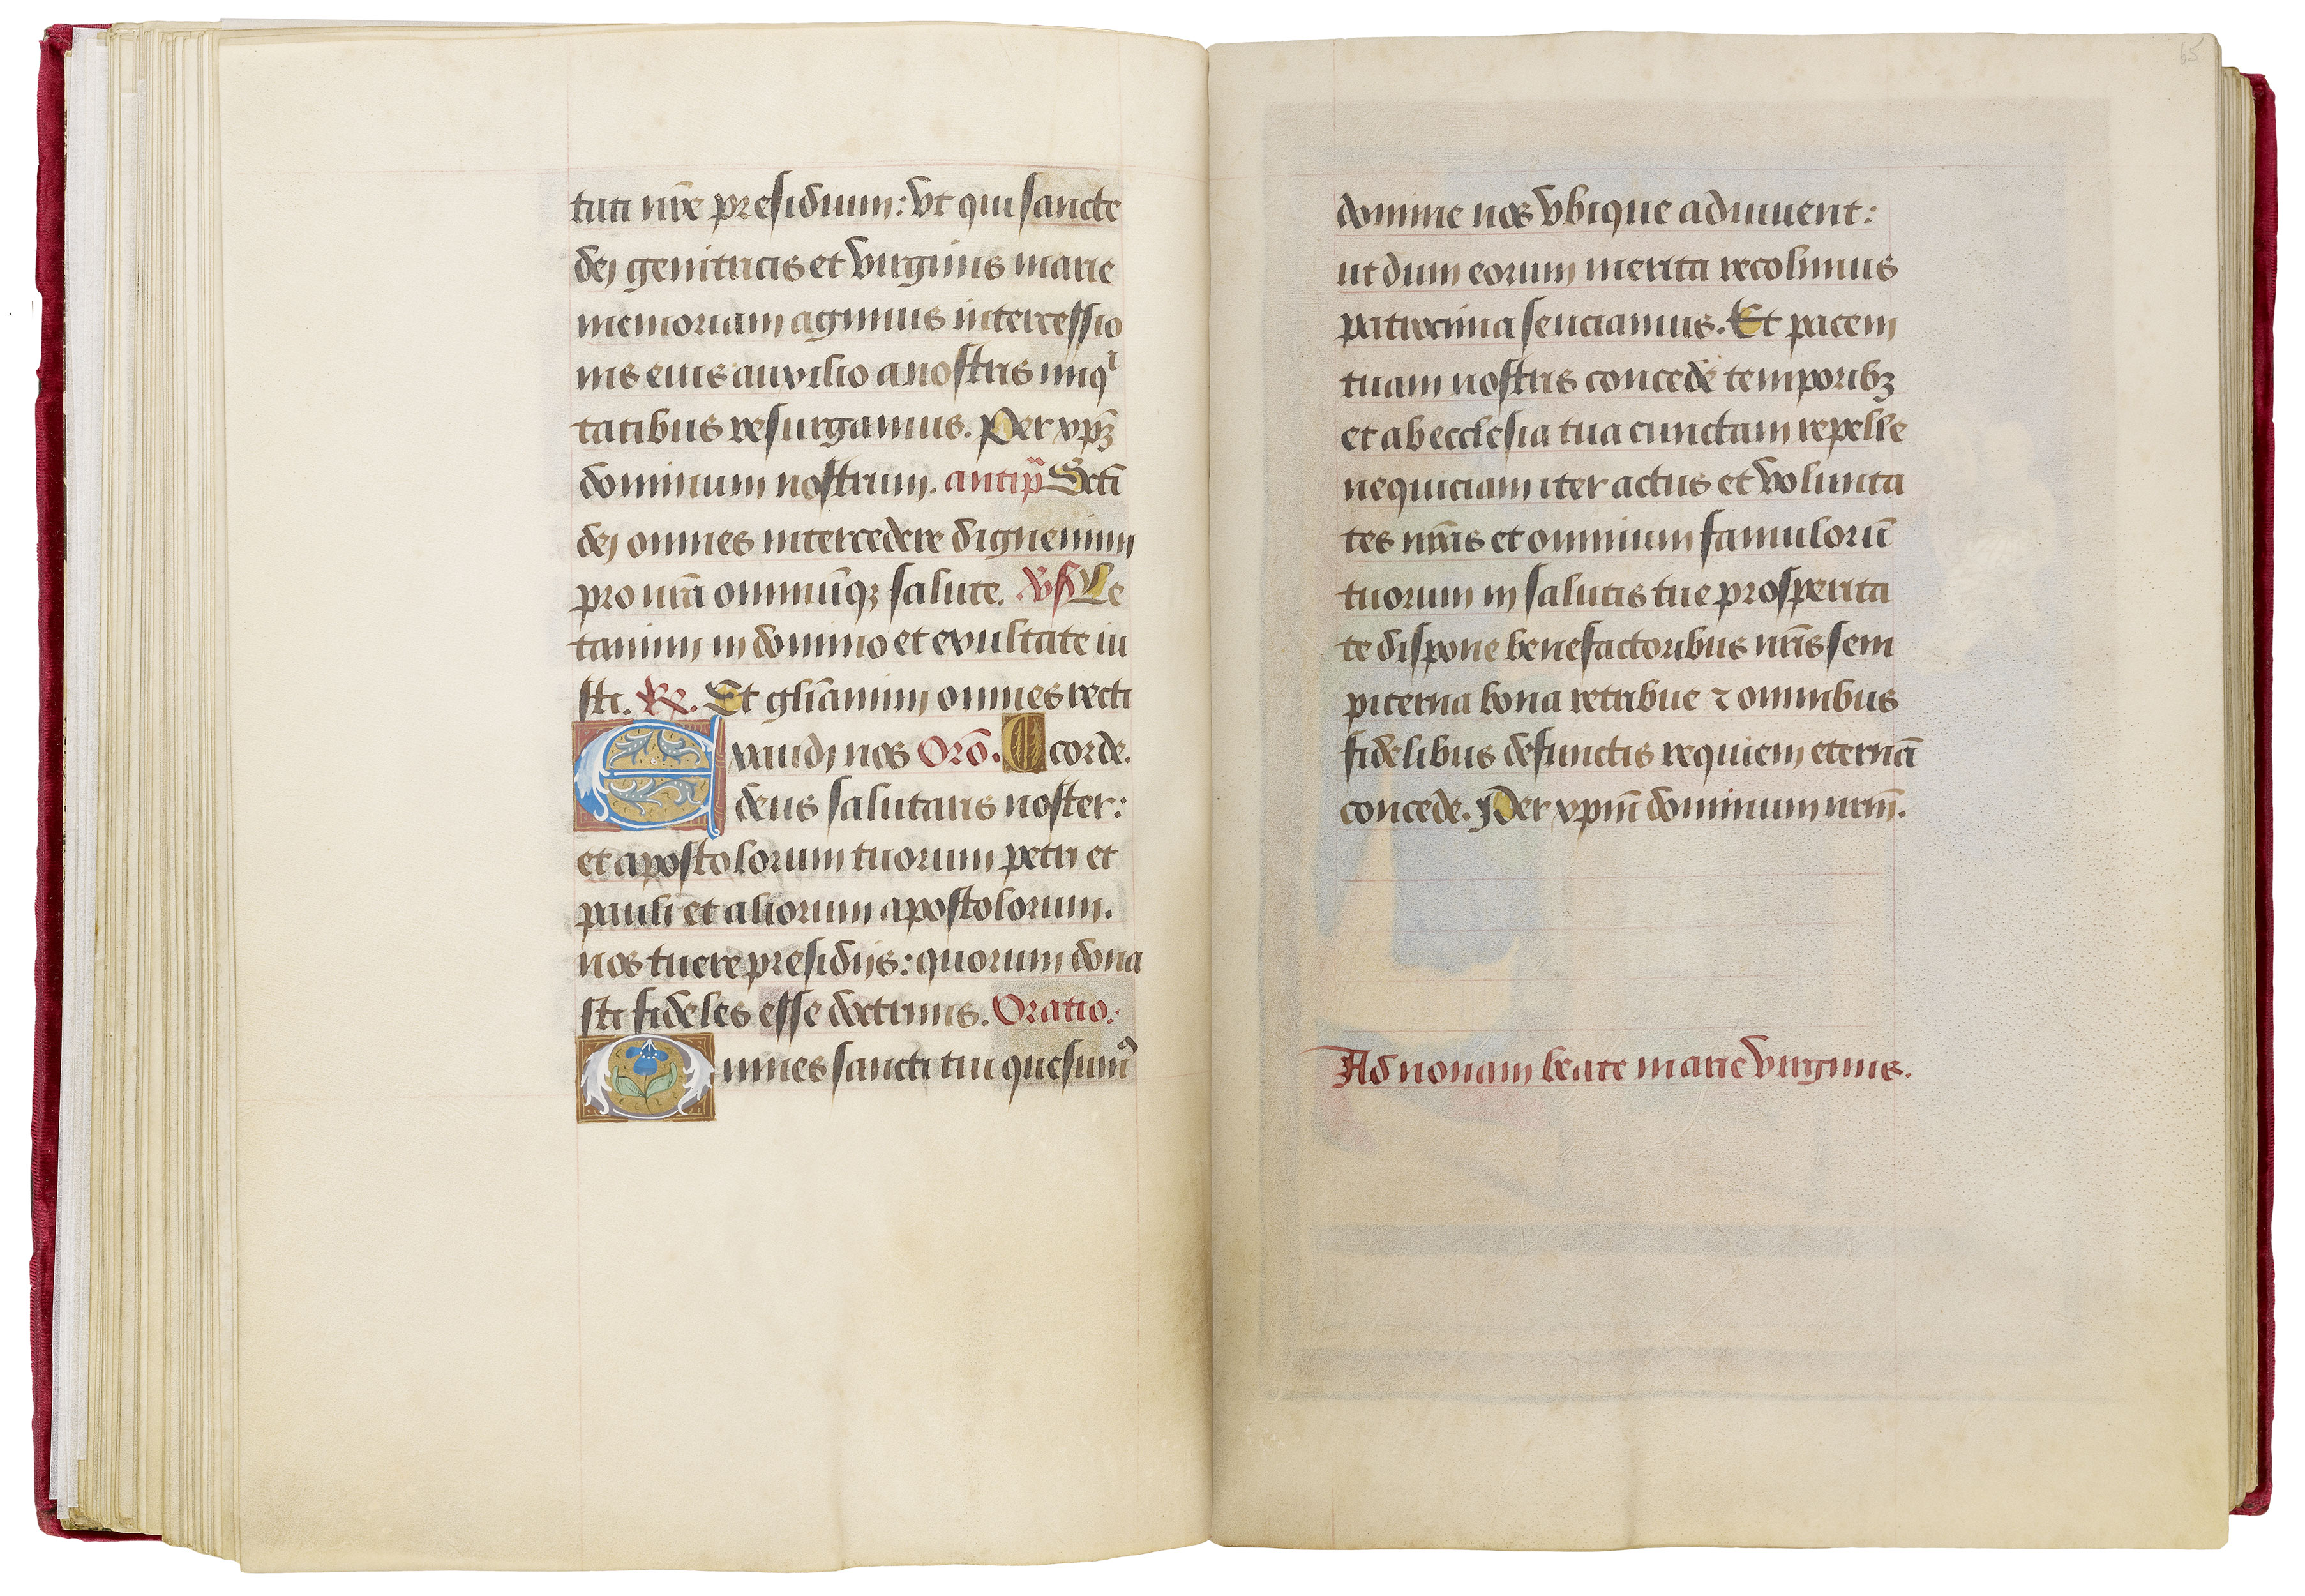 tati nr̄e presidium: vt qui sancte
dej genitricis et virginis marie
memoriam agimus intercessio
nis eius auxilio a nostris iniqͥ
tatibus resurgamus. Per xp̄ꝫ
dominum nostrum. antip̄ Sctī
dej omnes intercedere dignemini
pro nr̄a omniūqꝫ salute. v̄s Le
tamini in domino et exultate iu
sti. ℟. Et gl̄iamini omnes recti
corde.
Exaudj nos Orō.
deus salutaris noster:
et apostolorum tuorum petri et
pauli et aliorum apostolorum.
nos tuere presidijs: quorum dona
sti fideles esse doctrinis. Oratio:
Omnes sancti tui quesumꝰ
65
domine nos vbique adiuuent:
ut dum eorum merita recolimus
patrocinia senciamus. Et pacem
tuam nostris concede temporibꝫ
et ab ecclesia tua cunctam repelle
nequiciam iter actus et volunta
tes nr̄as et omnium famulorū
tuorum in salutis tue prosperita
te dispone benefactoribus nr̄is sem
piterna bona retribue ⁊ omnibus
fidelibus defunctis requiem eternā
concede. Per xpm̄ dominum nrm̄.
Ad nonam beate marie virginis.